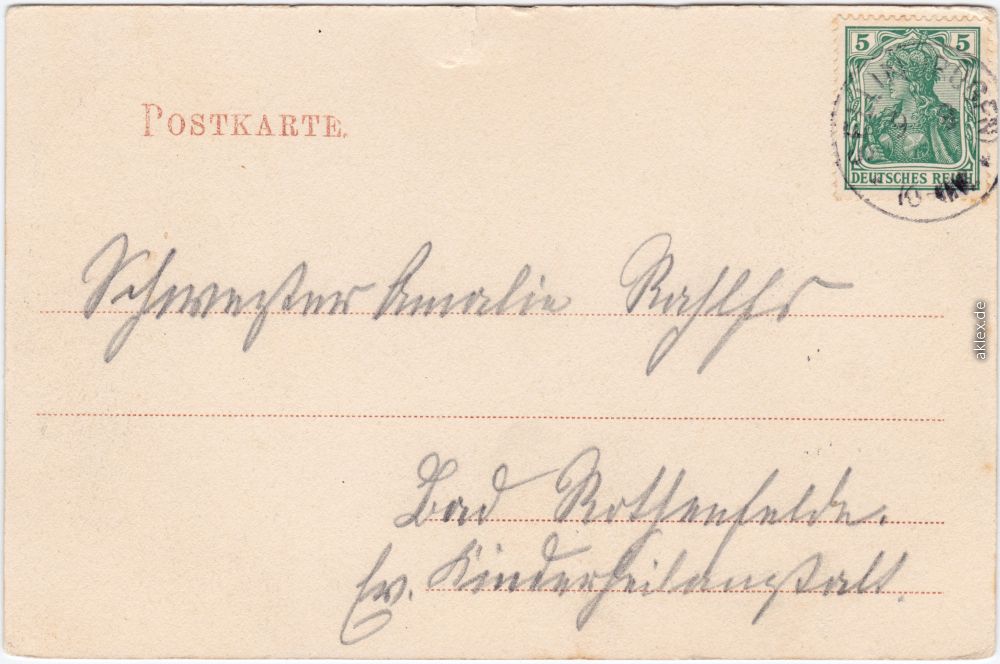 POSTKARTE.
5 5
DEUTSCHES REICH
Schwester Amalie Rahlfs
Bad Rothenfelde.
Ev. Kinderheilanstalt.
aklex.de